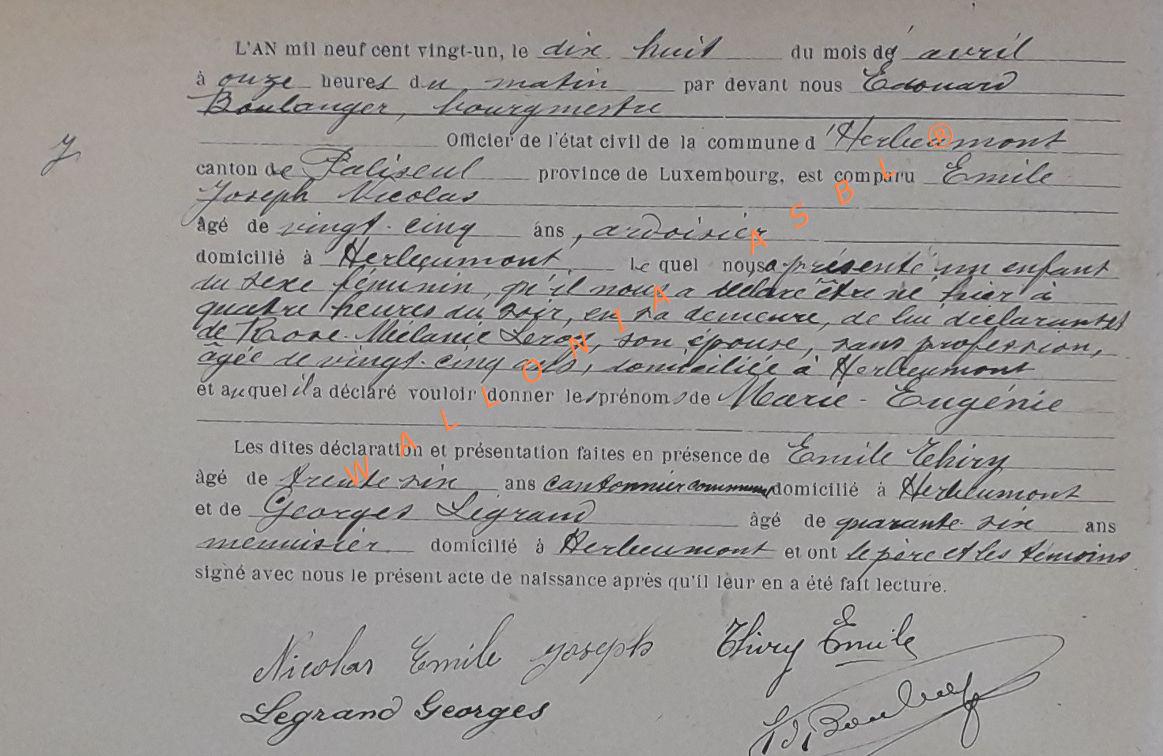 L'AN mil neuf cent vingt-un, le dix huit du mois de avril
à onze heures du matin par devant nous Edouard
Boulanger, bourgmestre
Officier de l'état civil de la commune d'Herbeumont
canton de Paliseul province de Luxembourg, est comparu Emile
Joseph Nicolas
âgé de vingt-cinq ans, ardoisier
domicilié à Herbeumont Lequel nous a présenté un enfant
du sexe féminin, qu'il nous a déclaré être né hier à
quatre heures du soir, en sa demeure, de lui déclarant et
de Rose Mélanie Leroy, son épouse, sans profession,
âgée de vingt-cinq ans, domiciliée à Herbeumont
et auquel il a déclaré vouloir donner les prénoms de Marie-Eugénie
Les dites déclaration et présentation faites en présence de Emile Thiry
âgé de trente-six ans cantonnier communal domicilié à Herbeumont
et de Georges Legrand âgé de quarante-six ans
menuisier domicilié à Herbeumont et ont le père et les témoins
signé avec nous le présent acte de naissance après qu'il leur en a été fait lecture.
Nicolas Emile Joseph Thiry Emile
Legrand Georges
WALLONIA ASBL